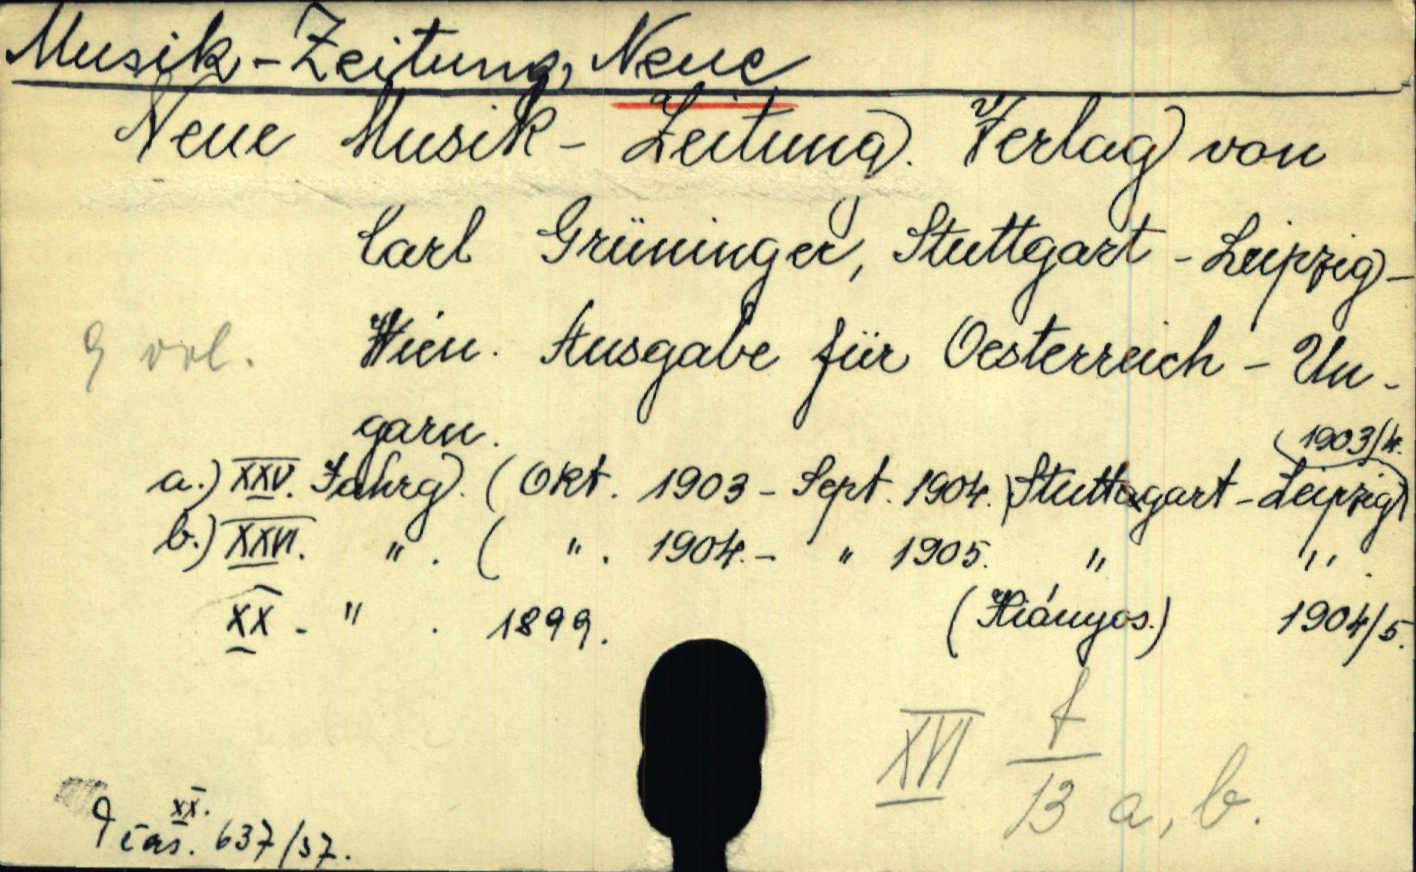 Musik-Zeitung, Neue
Neue Musik-Zeitung. Verlag von
Carl Grüninger, Stuttgart-Leipzig-
9 vol. Wien. Ausgabe für Oesterreich-Un-
garn.
1903/4.
a.) XXV. Jahrg. (Okt. 1903 - Sept. 1904.) Stuttgart-Leipzig
b.) XXVI. " . ( " . 1904.- " 1905. " " .
XX - " . 1899. (Hiányos.) 1904/5.
XVI f/13 a, b.
XX.
čas. 637/37.